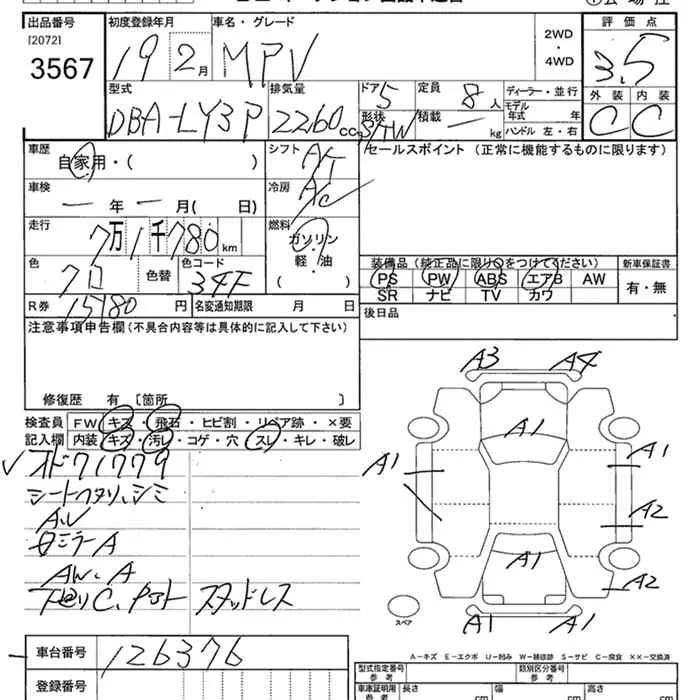 出品番号 初度登録年月 車名・グレード 2WD・4WD 評価点
[2072]
3567 19 2月 MPV 3.5
型式 排気量 ドア 5 定員 8人 ディーラー・並行 外装 内装
DBA-LY3P 2260cc 形状 S/TW 積載 ー kg モデル年式 年 C C
ハンドル 左・右
車歴 自家用・( ) シフト AT セールスポイント(正常に機能するものに限ります)
車検 ー年ー月( 日) 冷房 AC
走行 7万1千780km 燃料 ガソリン・軽・油 ( )
装備品(純正品に限り○をつけてください) 新車保証書
PS PW ABS エアB AW 有・無
SR ナビ TV カワ
色 クロ 色替 色コード 34F
後日品
R券 15180円 名変通知期限 月 日
注意事項申告欄(不具合内容等は具体的に記入して下さい)
修復歴 有 〔箇所 〕
検査員 FW キズ・飛石・ヒビ割・リペア跡・×要
記入欄 内装 キズ・汚レ・コゲ・穴・スレ・キレ・破レ
オド71779
シートヘタリ、シミ
A.U
ミラーA
AW、A
下回りC、 スタッドレス
A3 A4
A1
A1 A1
A2
A1 A2
A1 A1
スペア
A-キズ E-エクボ U-凹み W-補修跡 S-サビ C-腐食 ××-交換済
車台番号 126376
登録番号
型式指定番号 参考 類別区分番号 参考
車庫証明用 参考 長さ cm 幅 cm 高さ cm